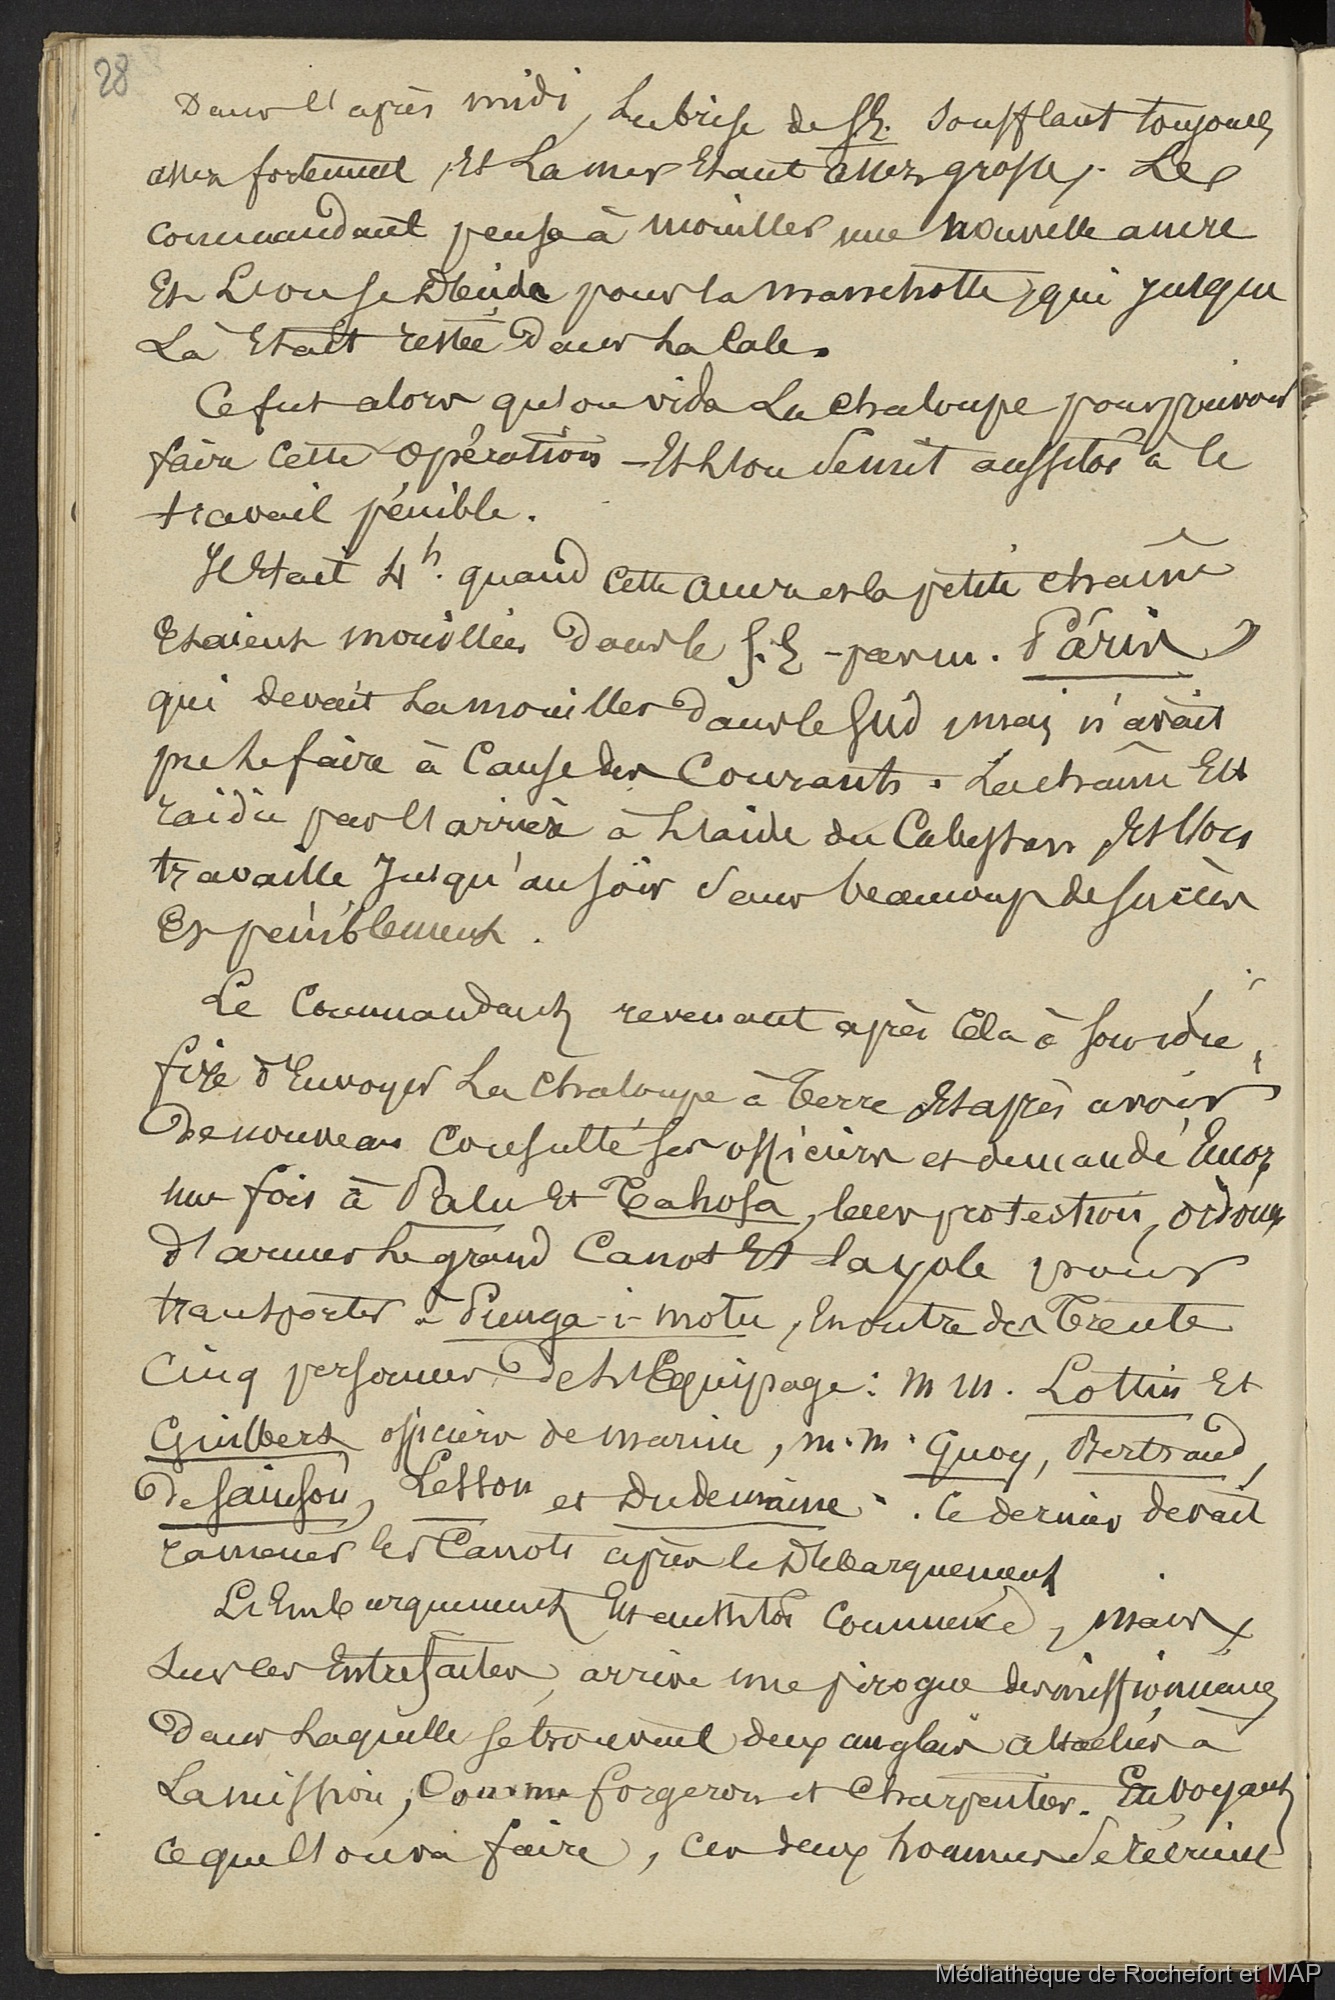 28
Dans l'après midi, La brise de S.E. soufflant toujours
assez fortement, Et La mer Etant assez grosse, Le
commandant pense à mouiller une nouvelle ancre
Et L'on se décide pour la marchotte, qui jusque
Là Etait restée dans La Cale.
Ce fut alors qu'on vida La chaloupe pour pouvoir
faire Cette Opération - Et L'on se mit aussitôt à le
travail pénible.
Il Etait 4h. quand Cette ancre et la petite chaîne
Etaient mouillées dans le S.E - par m. Pâris
qui devait La mouiller dans le Sud mais n'avait
pu Le faire à Cause des Courants. La chaîne Est
raidie par l'arrière à L'aide du Cabestan, Et l'on
travaille Jusqu'au soir sans beaucoup de succès
Et péniblement.
Le Commandant revenant après Cela à son idée
fixe d'Envoyer La Chaloupe à Terre Et après avoir
De nouveau Consulté ses officiers et demandé Encor
une fois à Palu Et Tahofa, leur protection, ordonne
d'armer Le grand Canot Et la yole pour
transporter à Punga-i-motu, En outre des Trente
Cinq personnes De L'Equipage: M M. Lottin Et
Guilbert officiers de marine, m.m. Quoy, Bertrand,
De Sainson, Lesson et Dudemaine. Ce dernier devait
ramener les Canots après le Débarquement
L'Embarquement Est aussitôt Commencé, mais
Sur ces Entrefaites, arrive une pirogue des missionnaires
Dans Laquelle se trouvent deux anglais attachés à
La mission, Comme forgeron et Charpentier. En voyant
ce que l'on va faire, ces deux hommes se récrient
Médiathèque de Rochefort et MAP